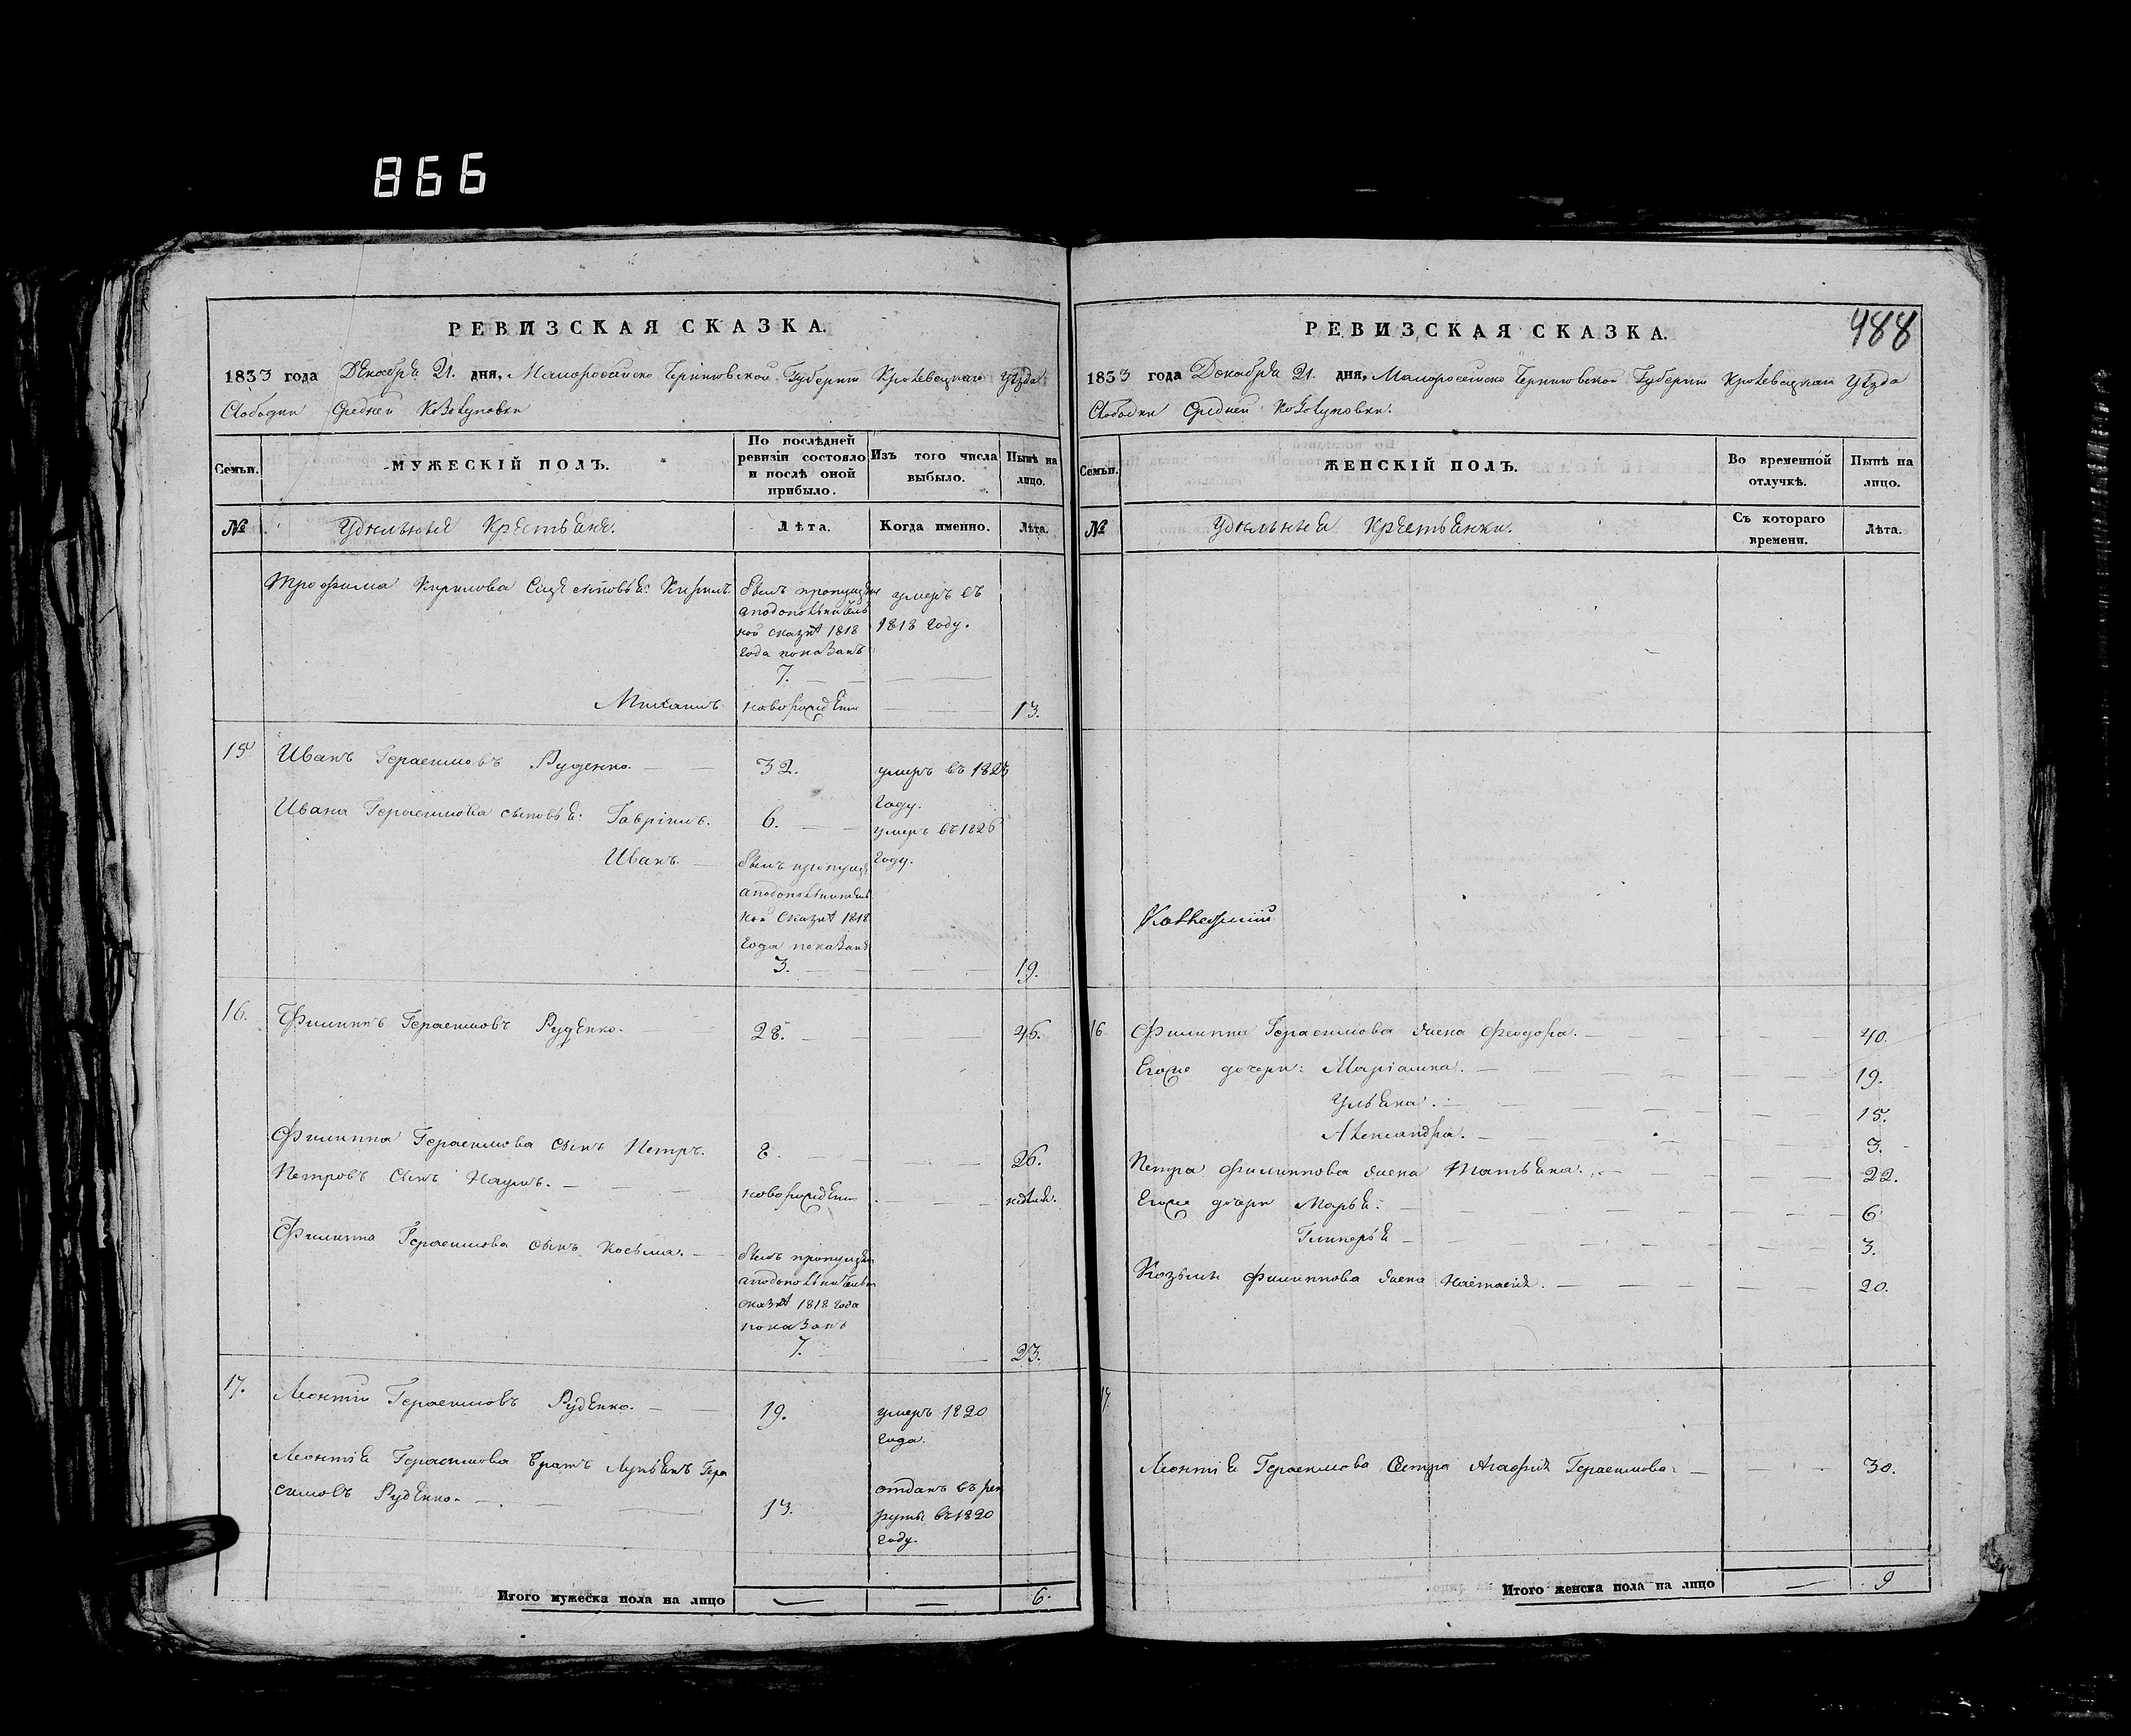 866
РЕВИЗСКАЯ СКАЗКА.
1833 года Декабря 21. дня, Малоросейско Черниговской Губернии Кролевецкаго Уѣзда
Слободки Средней
Семьи.
МУЖЕСКІЙ ПОЛЪ.
По послѣдней ревизіи состояло и послѣ оной прибыло.
Изъ того числа выбыло.
Нынѣ на лицо.
№
Удѣльные Крестьяне.
Лѣта.
Когда именно.
Лѣта.
Трофима Кирилова сыновья: Кирилъ
былъ пропущенъ
а подополнитель
ной сказкѣ 1818
года показанъ
7.
умеръ въ
1818 году.
Михаилъ новорожденъ 13.
15 Иванъ Герасимовъ Руденко. 32. умеръ въ
году.
Ивана Герасимова сыновья: Гаврiилъ. 6. умеръ въ 1826
году.
Иванъ. былъ пропущ
а подополнитель
ной сказкѣ 1818
года показанъ
3. 19.
16. Филиппъ Герасимовъ Руденко. 28. 46.
Филиппа Герасимова сынъ Петръ. 8. 26.
Петровъ сынъ Наумъ. новорожденъ недѣль.
Филиппа Герасимова сынъ Косьма. былъ пропущен
а подополнительн
сказкѣ 1818 года
показанъ
7. 23.
17. Леонтій Герасимовъ Руденко. 19. умеръ 1820
года.
Леонтія Герасимова братъ Лукьянъ Гера
симовъ Руденко. 13. отданъ въ рек
руты въ 1820
году.
Итого мужеска пола на лицо — — 6.
488
РЕВИЗСКАЯ СКАЗКА.
1833 года Декабря 21. дня, Малоросейско Черниговской Губернии Кролевецкаго Уѣзда
Слободки Средней
Семьи.
ЖЕНСКІЙ ПОЛЪ.
Во временной отлучкѣ.
Нынѣ на лицо.
№
Удѣльныя Крестьянки.
Съ котораго времени.
Лѣта.
16 Филиппа Герасимова жена Феодора. 40.
Егоже дочери: Маріамна. 19.
Ульяна. 15.
Александра. 3.
Петра Филиппова жена Татьяна. 22.
Егоже дочери Марья. 6
Гликерья 3.
Козьмы Филиппова жена Настасія. 20.
17
Леонтія Герасимова Сестра Агафія Герасимова. 30.
Итого женска пола на лицо — 9